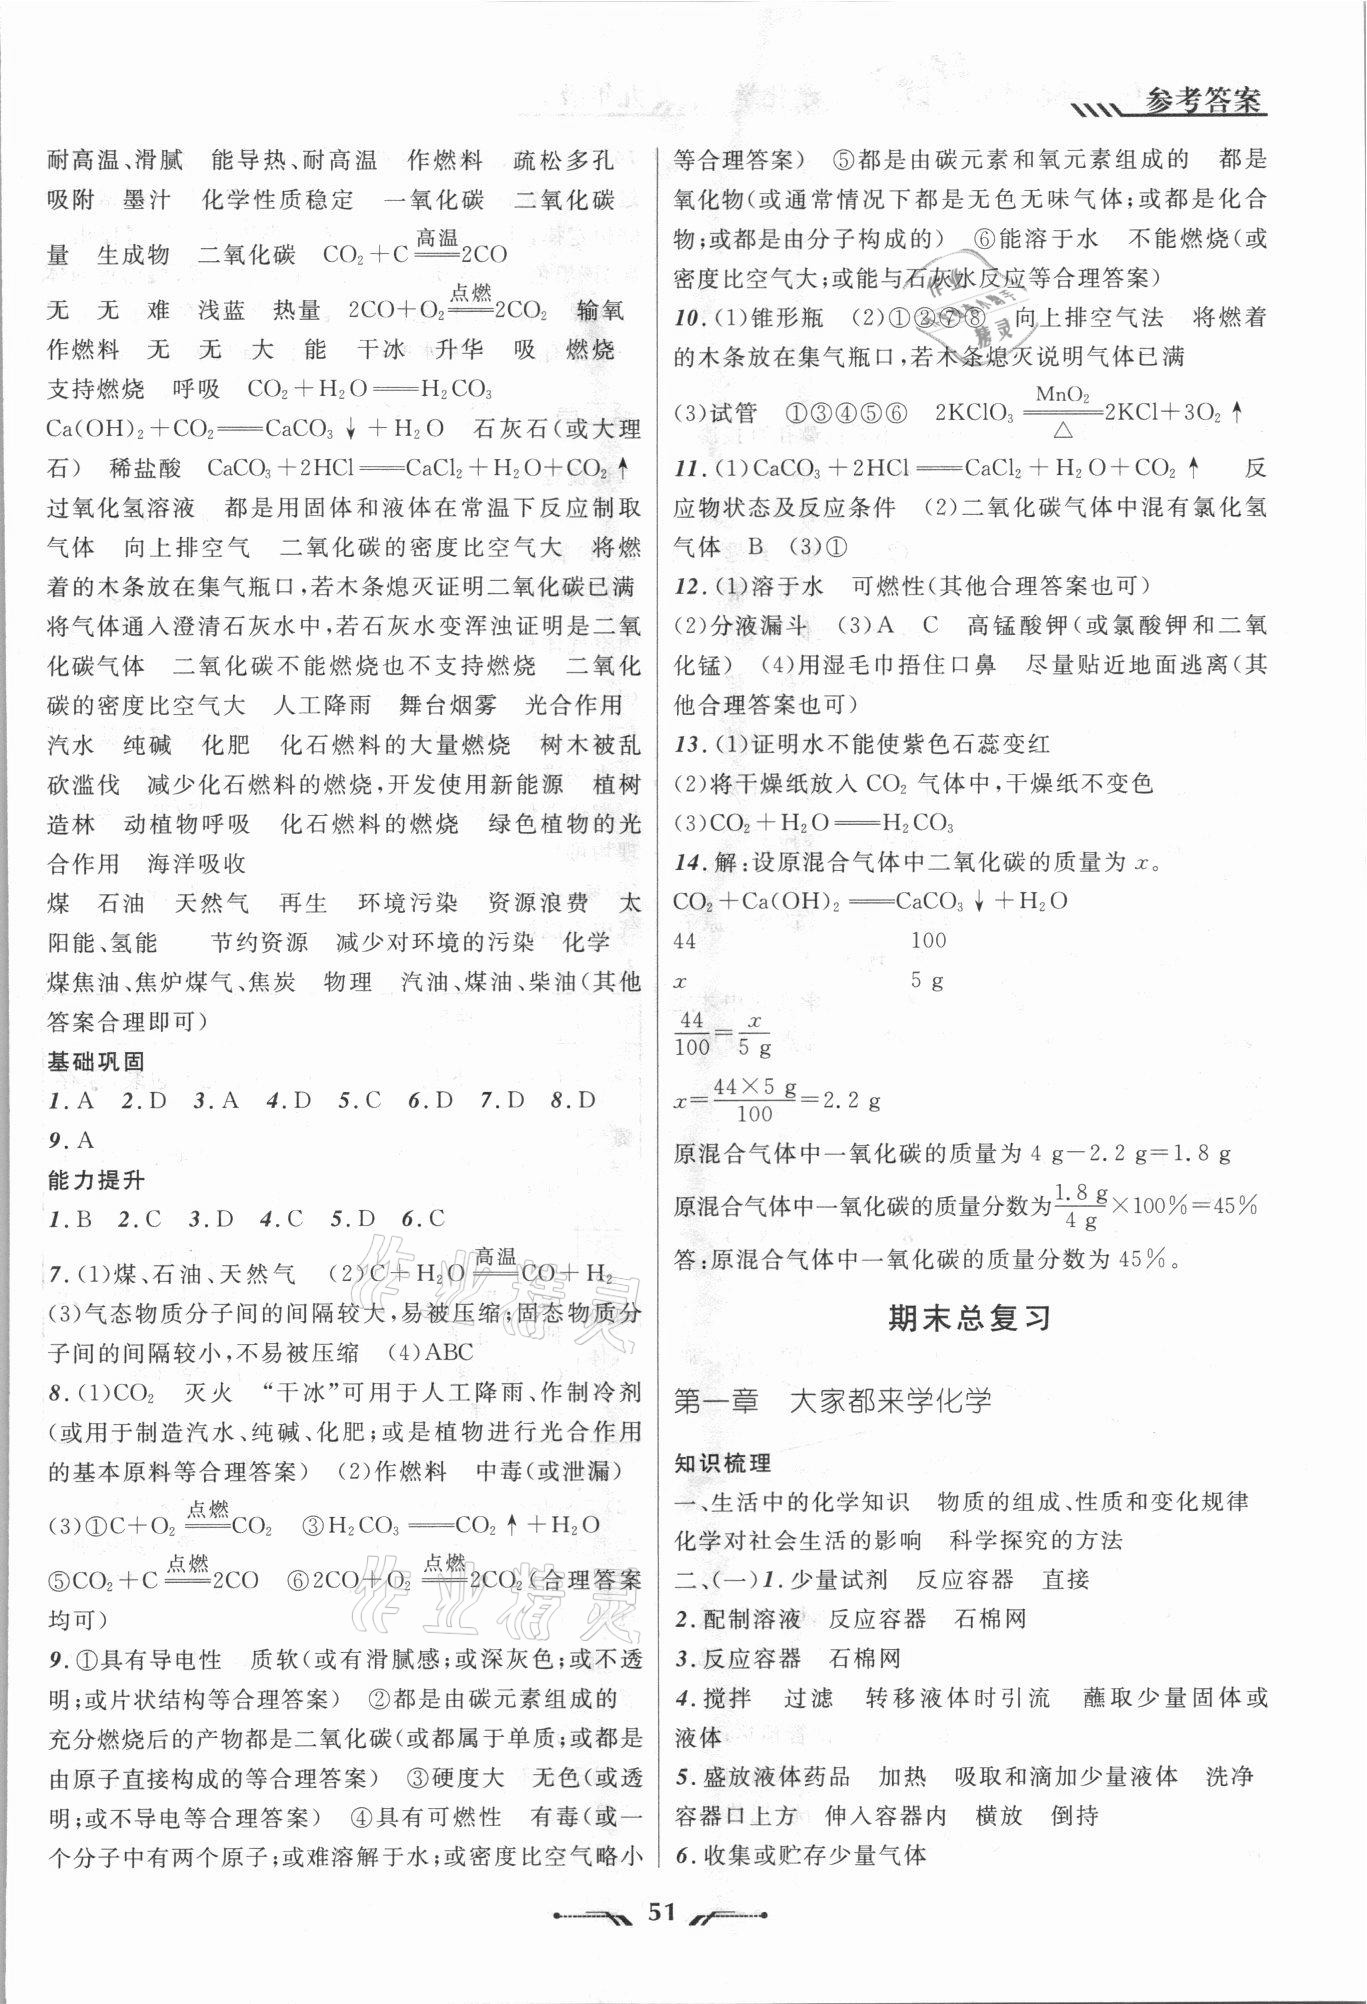 参考答案
耐高温、滑腻　能导热、耐高温　作燃料　疏松多孔
吸附　墨汁　化学性质稳定　一氧化碳　二氧化碳
量　生成物　二氧化碳　CO₂+C=高温=2CO
无　无　难　浅蓝　热量　2CO+O₂=点燃=2CO₂　输氧
作燃料　无　无　大　能　干冰　升华　吸　燃烧
支持燃烧　呼吸　CO₂+H₂O══H₂CO₃
Ca(OH)₂+CO₂══CaCO₃↓+H₂O　石灰石(或大理
石)　稀盐酸　CaCO₃+2HCl══CaCl₂+H₂O+CO₂↑
过氧化氢溶液　都是用固体和液体在常温下反应制取
气体　向上排空气　二氧化碳的密度比空气大　将燃
着的木条放在集气瓶口,若木条熄灭证明二氧化碳已满
将气体通入澄清石灰水中,若石灰水变浑浊证明是二氧
化碳气体　二氧化碳不能燃烧也不支持燃烧　二氧化
碳的密度比空气大　人工降雨　舞台烟雾　光合作用
汽水　纯碱　化肥　化石燃料的大量燃烧　树木被乱
砍滥伐　减少化石燃料的燃烧,开发使用新能源　植树
造林　动植物呼吸　化石燃料的燃烧　绿色植物的光
合作用　海洋吸收
煤　石油　天然气　再生　环境污染　资源浪费　太
阳能、氢能　节约资源　减少对环境的污染　化学
煤焦油、焦炉煤气、焦炭　物理　汽油、煤油、柴油(其他
答案合理即可)
基础巩固
1.A　2.D　3.A　4.D　5.C　6.D　7.D　8.D
9.A
能力提升
1.B　2.C　3.D　4.C　5.D　6.C
7.(1)煤、石油、天然气　(2)C+H₂O=高温=CO+H₂
(3)气态物质分子间的间隔较大,易被压缩;固态物质分
子间的间隔较小,不易被压缩　(4)ABC
8.(1)CO₂　灭火　“干冰”可用于人工降雨、作制冷剂
(或用于制造汽水、纯碱、化肥;或是植物进行光合作用
的基本原料等合理答案)　(2)作燃料　中毒(或泄漏)
(3)①C+O₂=点燃=CO₂　③H₂CO₃══CO₂↑+H₂O
⑤CO₂+C=点燃=2CO　⑥2CO+O₂=点燃=2CO₂(合理答案
均可)
9.①具有导电性　质软(或有滑腻感;或深灰色;或不透
明;或片状结构等合理答案)　②都是由碳元素组成的
充分燃烧后的产物都是二氧化碳(或都属于单质;或都是
由原子直接构成的等合理答案)　③硬度大　无色(或透
明;或不导电等合理答案)　④具有可燃性　有毒(或一
个分子中有两个原子;或难溶解于水;或密度比空气略小
等合理答案)　⑤都是由碳元素和氧元素组成的　都是
氧化物(或通常情况下都是无色无味气体;或都是化合
物;或都是由分子构成的)　⑥能溶于水　不能燃烧(或
密度比空气大;或能与石灰水反应等合理答案)
10.(1)锥形瓶　(2)①③⑦⑧　向上排空气法　将燃着
的木条放在集气瓶口,若木条熄灭说明气体已满
(3)试管　①③④⑤⑥　2KClO₃=MnO₂/△=2KCl+3O₂↑
11.(1)CaCO₃+2HCl══CaCl₂+H₂O+CO₂↑　反
应物状态及反应条件　(2)二氧化碳气体中混有氯化氢
气体　B　(3)①
12.(1)溶于水　可燃性(其他合理答案也可)
(2)分液漏斗　(3)A　C　高锰酸钾(或氯酸钾和二氧
化锰)　(4)用湿毛巾捂住口鼻　尽量贴近地面逃离(其
他合理答案也可)
13.(1)证明水不能使紫色石蕊变红
(2)将干燥纸放入CO₂气体中,干燥纸不变色
(3)CO₂+H₂O══H₂CO₃
14.解:设原混合气体中二氧化碳的质量为x。
CO₂+Ca(OH)₂══CaCO₃↓+H₂O
44　100
x　5 g
44/100=x/5 g
x=44×5 g/100=2.2 g
原混合气体中一氧化碳的质量为4 g-2.2 g=1.8 g
原混合气体中一氧化碳的质量分数为1.8 g/4 g×100%=45%
答:原混合气体中一氧化碳的质量分数为45%。
期末总复习
第一章　大家都来学化学
知识梳理
一、生活中的化学知识　物质的组成、性质和变化规律
化学对社会生活的影响　科学探究的方法
二、(一)1.少量试剂　反应容器　直接
2.配制溶液　反应容器　石棉网
3.反应容器　石棉网
4.搅拌　过滤　转移液体时引流　蘸取少量固体或
液体
5.盛放液体药品　加热　吸取和滴加少量液体　洗净
容器口上方　伸入容器内　横放　倒持
6.收集或贮存少量气体
51
作业精灵
作业精灵